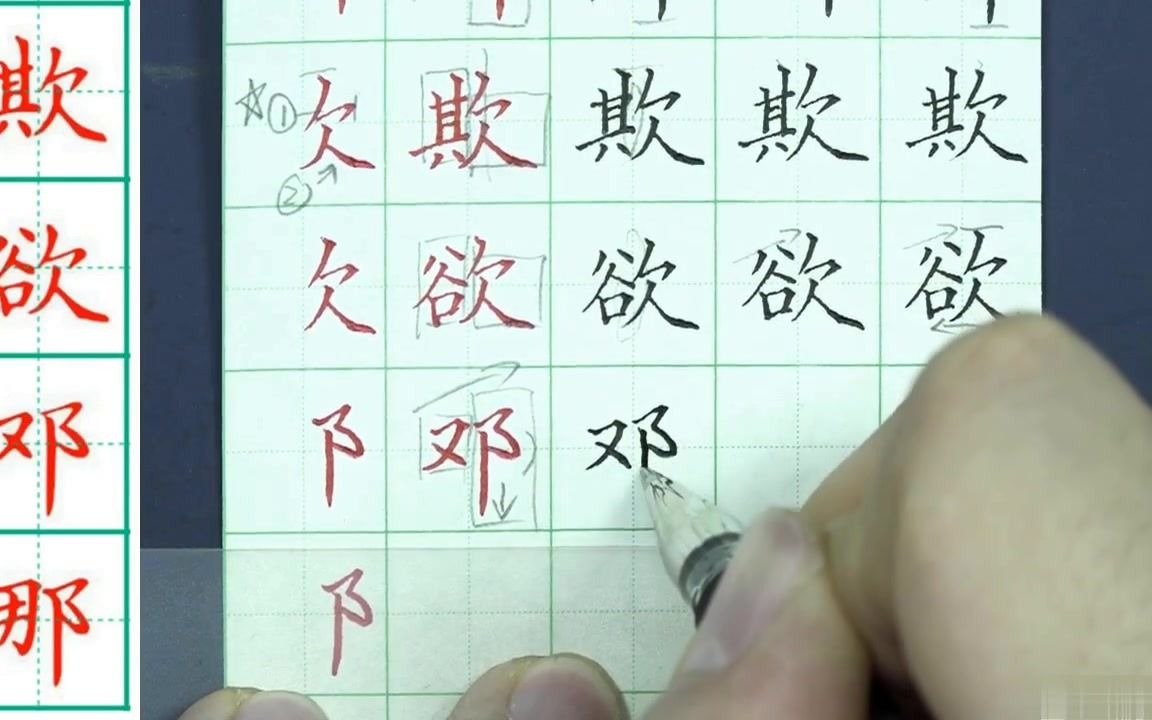 欺
欲
邓
那
①欠 欺 欺 欺 欺
②
欠 欲 欲 欲 欲
阝 邓 邓
阝